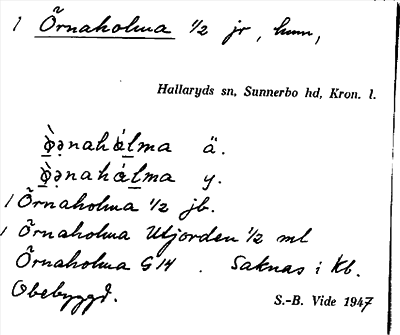 1 Õrnaholma 1/2 jr, hmn,
Hallaryds sn, Sunnerbo hd, Kron. l.
ä.
y.
1 Õrnaholma 1/2 jb.
1 Õrnaholma Utjorden 1/2 ml
Õrnaholma G 14 . Saknas i Kb.
Obebyggd.
S.-B. Vide 1947